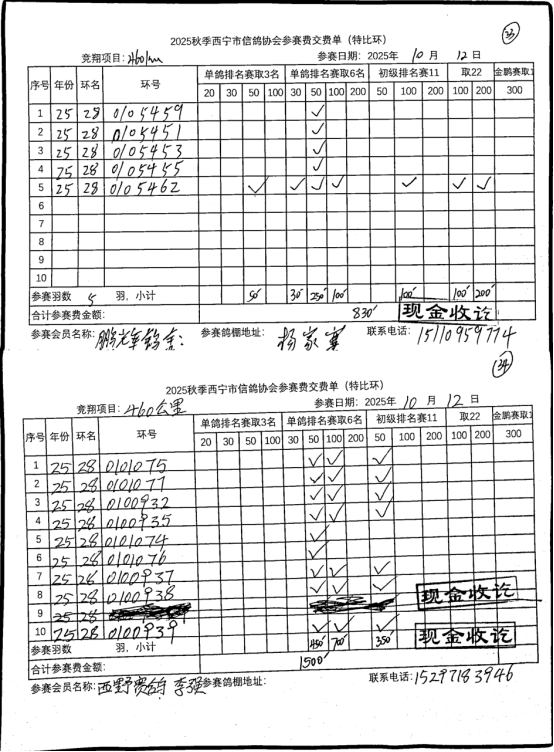 33
2025秋季西宁市信鸽协会参赛费交费单（特比环）
竞翔项目: 460km 参赛日期: 2025年 10 月 12 日
序号 年份 环名 环号 单鸽排名赛取3名 单鸽排名赛取6名 初级排名赛11 取22 金鹏赛取1
20 30 50 100 30 50 100 200 50 100 200 100 200 300
1 25 28 0105459 ✓
2 25 28 0105451 ✓
3 25 28 0105453 ✓
4 25 28 0105455 ✓
5 25 28 0105462 ✓ ✓ ✓ ✓ ✓ ✓ ✓
6
7
8
9
10
参赛羽数 5 羽, 小计 50 30 250 100 100 100 200
合计参赛费金额: 830 现金收讫
参赛会员名称: 参赛鸽棚地址: 杨家寨 联系电话: 15110959774
34
2025秋季西宁市信鸽协会参赛费交费单（特比环）
竞翔项目: 460公里 参赛日期: 2025年 10 月 12 日
序号 年份 环名 环号 单鸽排名赛取3名 单鸽排名赛取6名 初级排名赛11 取22 金鹏赛取1
20 30 50 100 30 50 100 200 50 100 200 100 200 300
1 25 28 0101075 ✓ ✓ ✓
2 25 28 0101077 ✓ ✓ ✓
3 25 28 0100932 ✓ ✓ ✓
4 25 28 0100935 ✓ ✓ ✓
5 25 28 0101074 ✓
6 25 28 0101076 ✓
7 25 28 0100937 ✓ ✓ ✓
8 25 28 0100938 ✓ ✓ ✓
现金收讫
9 25 28
10 25 28 0100939 ✓ ✓ ✓
参赛羽数 羽, 小计 450 700 350 现金收讫
合计参赛费金额: 1500
参赛会员名称: 西野赛鸽 李强 参赛鸽棚地址: 联系电话: 15297183946